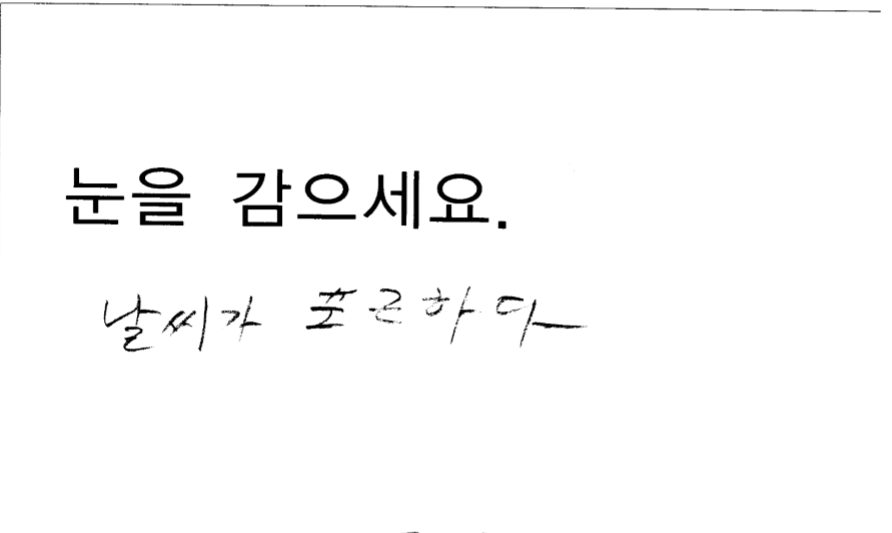 눈을 감으세요.
날씨가 포근하다